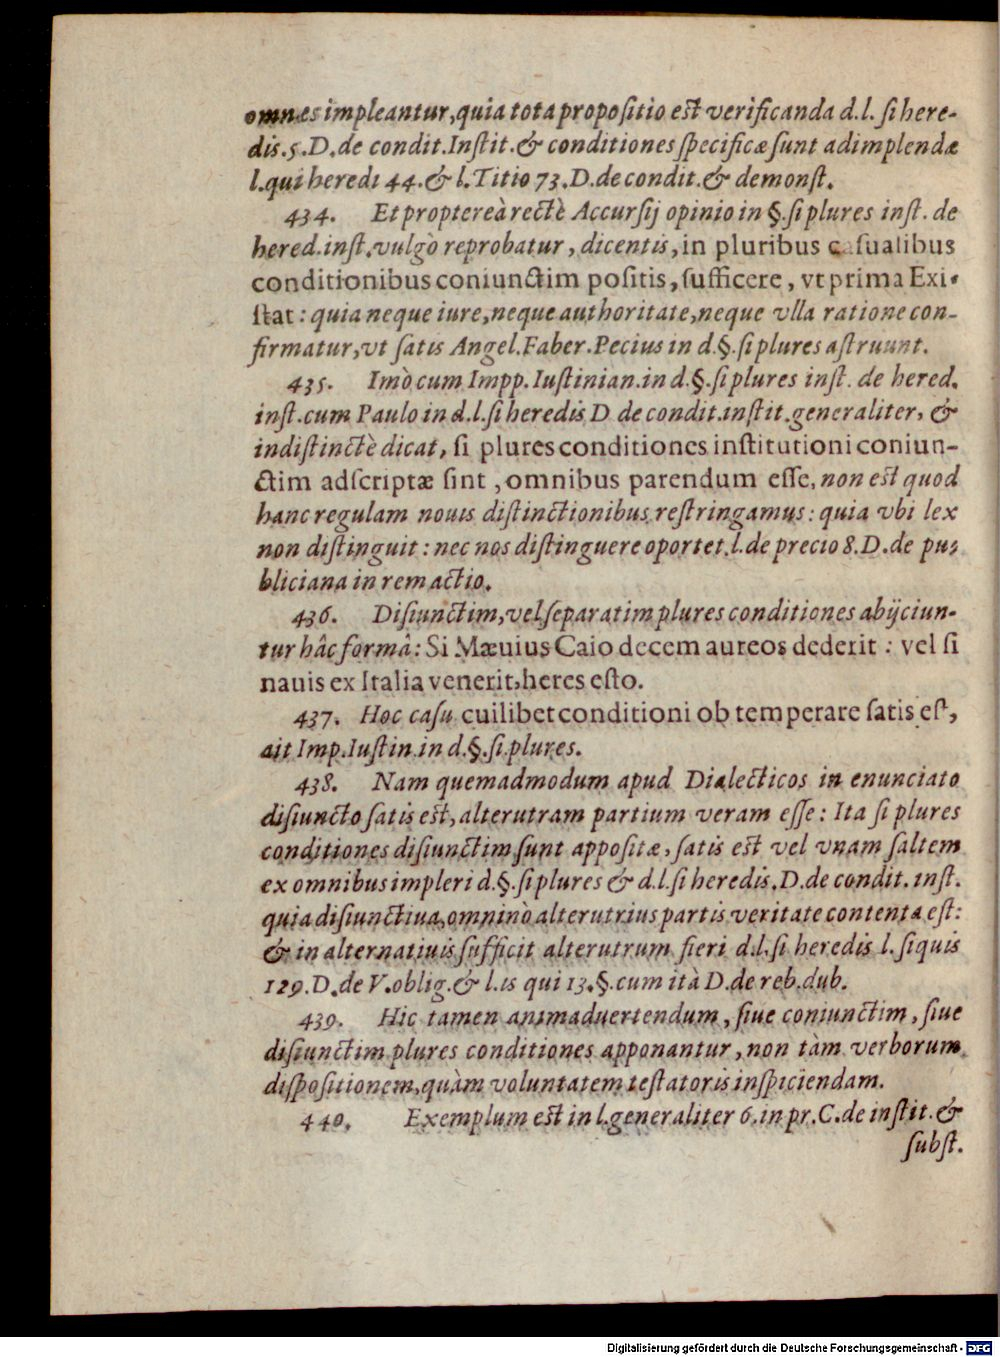 omnes impleantur, quia tota propositio est verificanda d.l. si here-
dis.5.D.de condit.Instit.& conditiones specificæ sunt adimplendæ
l.qui heredi 44.& l.Titio 73.D.de condit.& demonst.
434. Et proptereà rectè Accursij opinio in §.si plures inst. de
hered.inst.vulgò reprobatur, dicentis, in pluribus casualibus
conditionibus coniunctim positis, sufficere, vt prima Exi-
stat: quia neque iure, neque authoritate, neque vlla ratione con-
firmatur, vt satis Angel.Faber.Pecius in d.§.si plures astruunt.
435. Imò cum Impp.Iustinian.in d.§.si plures inst. de hered.
inst.cum Paulo in d.l.si heredis D de condit.instit.generaliter, &
indistinctè dicat, si plures conditiones institutioni coniun-
ctim adscriptæ sint, omnibus parendum esse, non est quod
hanc regulam nouis distinctionibus restringamus: quia vbi lex
non distinguit: nec nos distinguere oportet.l.de precio 8.D.de pu-
bliciana in rem actio.
436. Disiunctim, vel separatim plures conditiones abijciun-
tur hâc formâ: Si Mæuius Caio decem aureos dederit: vel si
nauis ex Italia venerit, heres esto.
437. Hoc casu cuilibet conditioni obtemperare satis est,
ait Imp.Iustin.in d.§.si plures.
438. Nam quemadmodum apud Dialecticos in enunciato
disiuncto satis est, alterutram partium veram esse: Ita si plures
conditiones disiunctim sunt appositæ, satis est vel vnam saltem
ex omnibus impleri d.§.si plures & d.l.si heredis.D.de condit.inst.
quia disiunctiua, omninò alterutrius partis veritate contenta est:
& in alternatiuis sufficit alterutrum fieri d.l.si heredis l. si quis
129.D.de V.oblig.& l.is qui 13.§.cum ità D.de reb.dub.
439. Hic tamen animaduertendum, siue coniunctim, siue
disiunctim plures conditiones apponantur, non tàm verborum
dispositionem, quàm voluntatem testatoris inspiciendam.
440. Exemplum est in l.generaliter 6.in pr.C.de instit.&
subst.
Digitalisierung gefördert durch die Deutsche Forschungsgemeinschaft - DFG